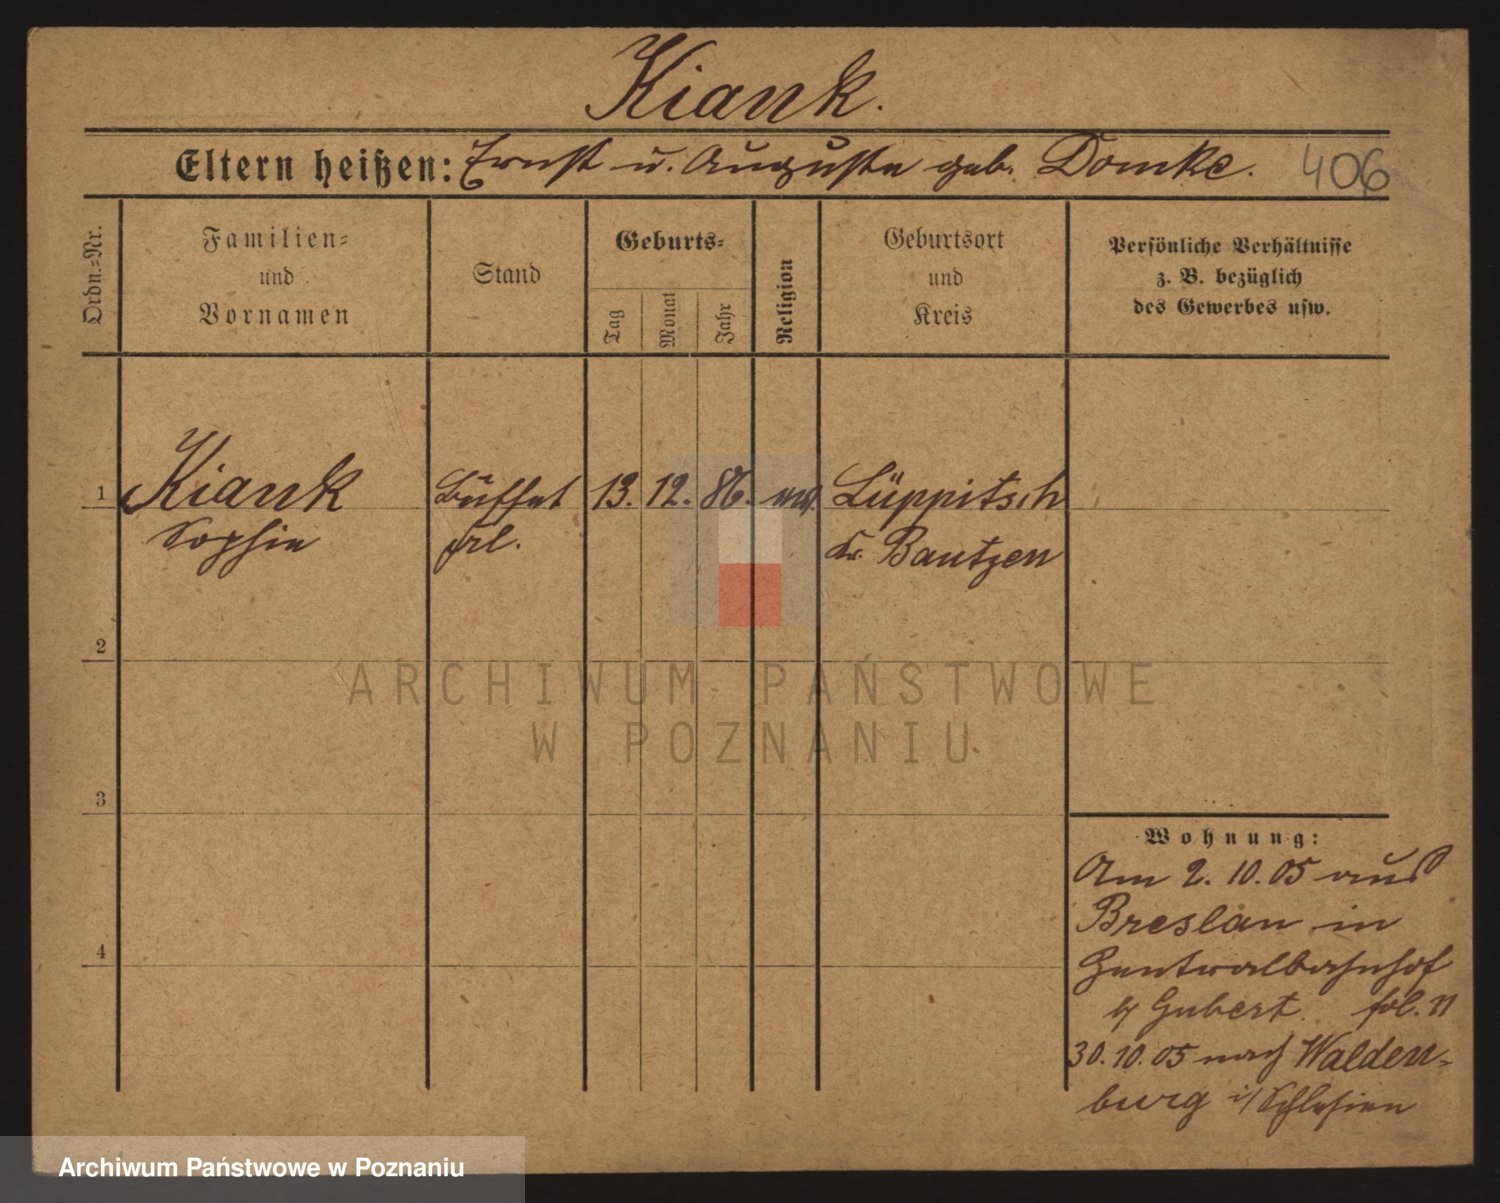 Kiank.
Eltern heißen: Ernst u. Auguste geb. Domke. 406
Ordn.=Nr.
Familien=
und
Vornamen
Stand
Geburts=
Tag
Monat
Jahr
Religion
Geburtsort
und
Kreis
Persönliche Verhältnisse
z. B. bezüglich
des Gewerbes usw.
1 Kiank Buffet 13. 12. 86. Lüppitsch
Sophie frl. Kr. Bautzen
2
3
4
Wohnung:
Am 2. 10. 05 aus
Breslau in
Zentralbahnhof
b/ Gubert. fol. 11
30. 10. 05 nach Walden-
burg i/ Schlesien
ARCHIWUM PAŃSTWOWE
W POZNANIU
Archiwum Państwowe w Poznaniu